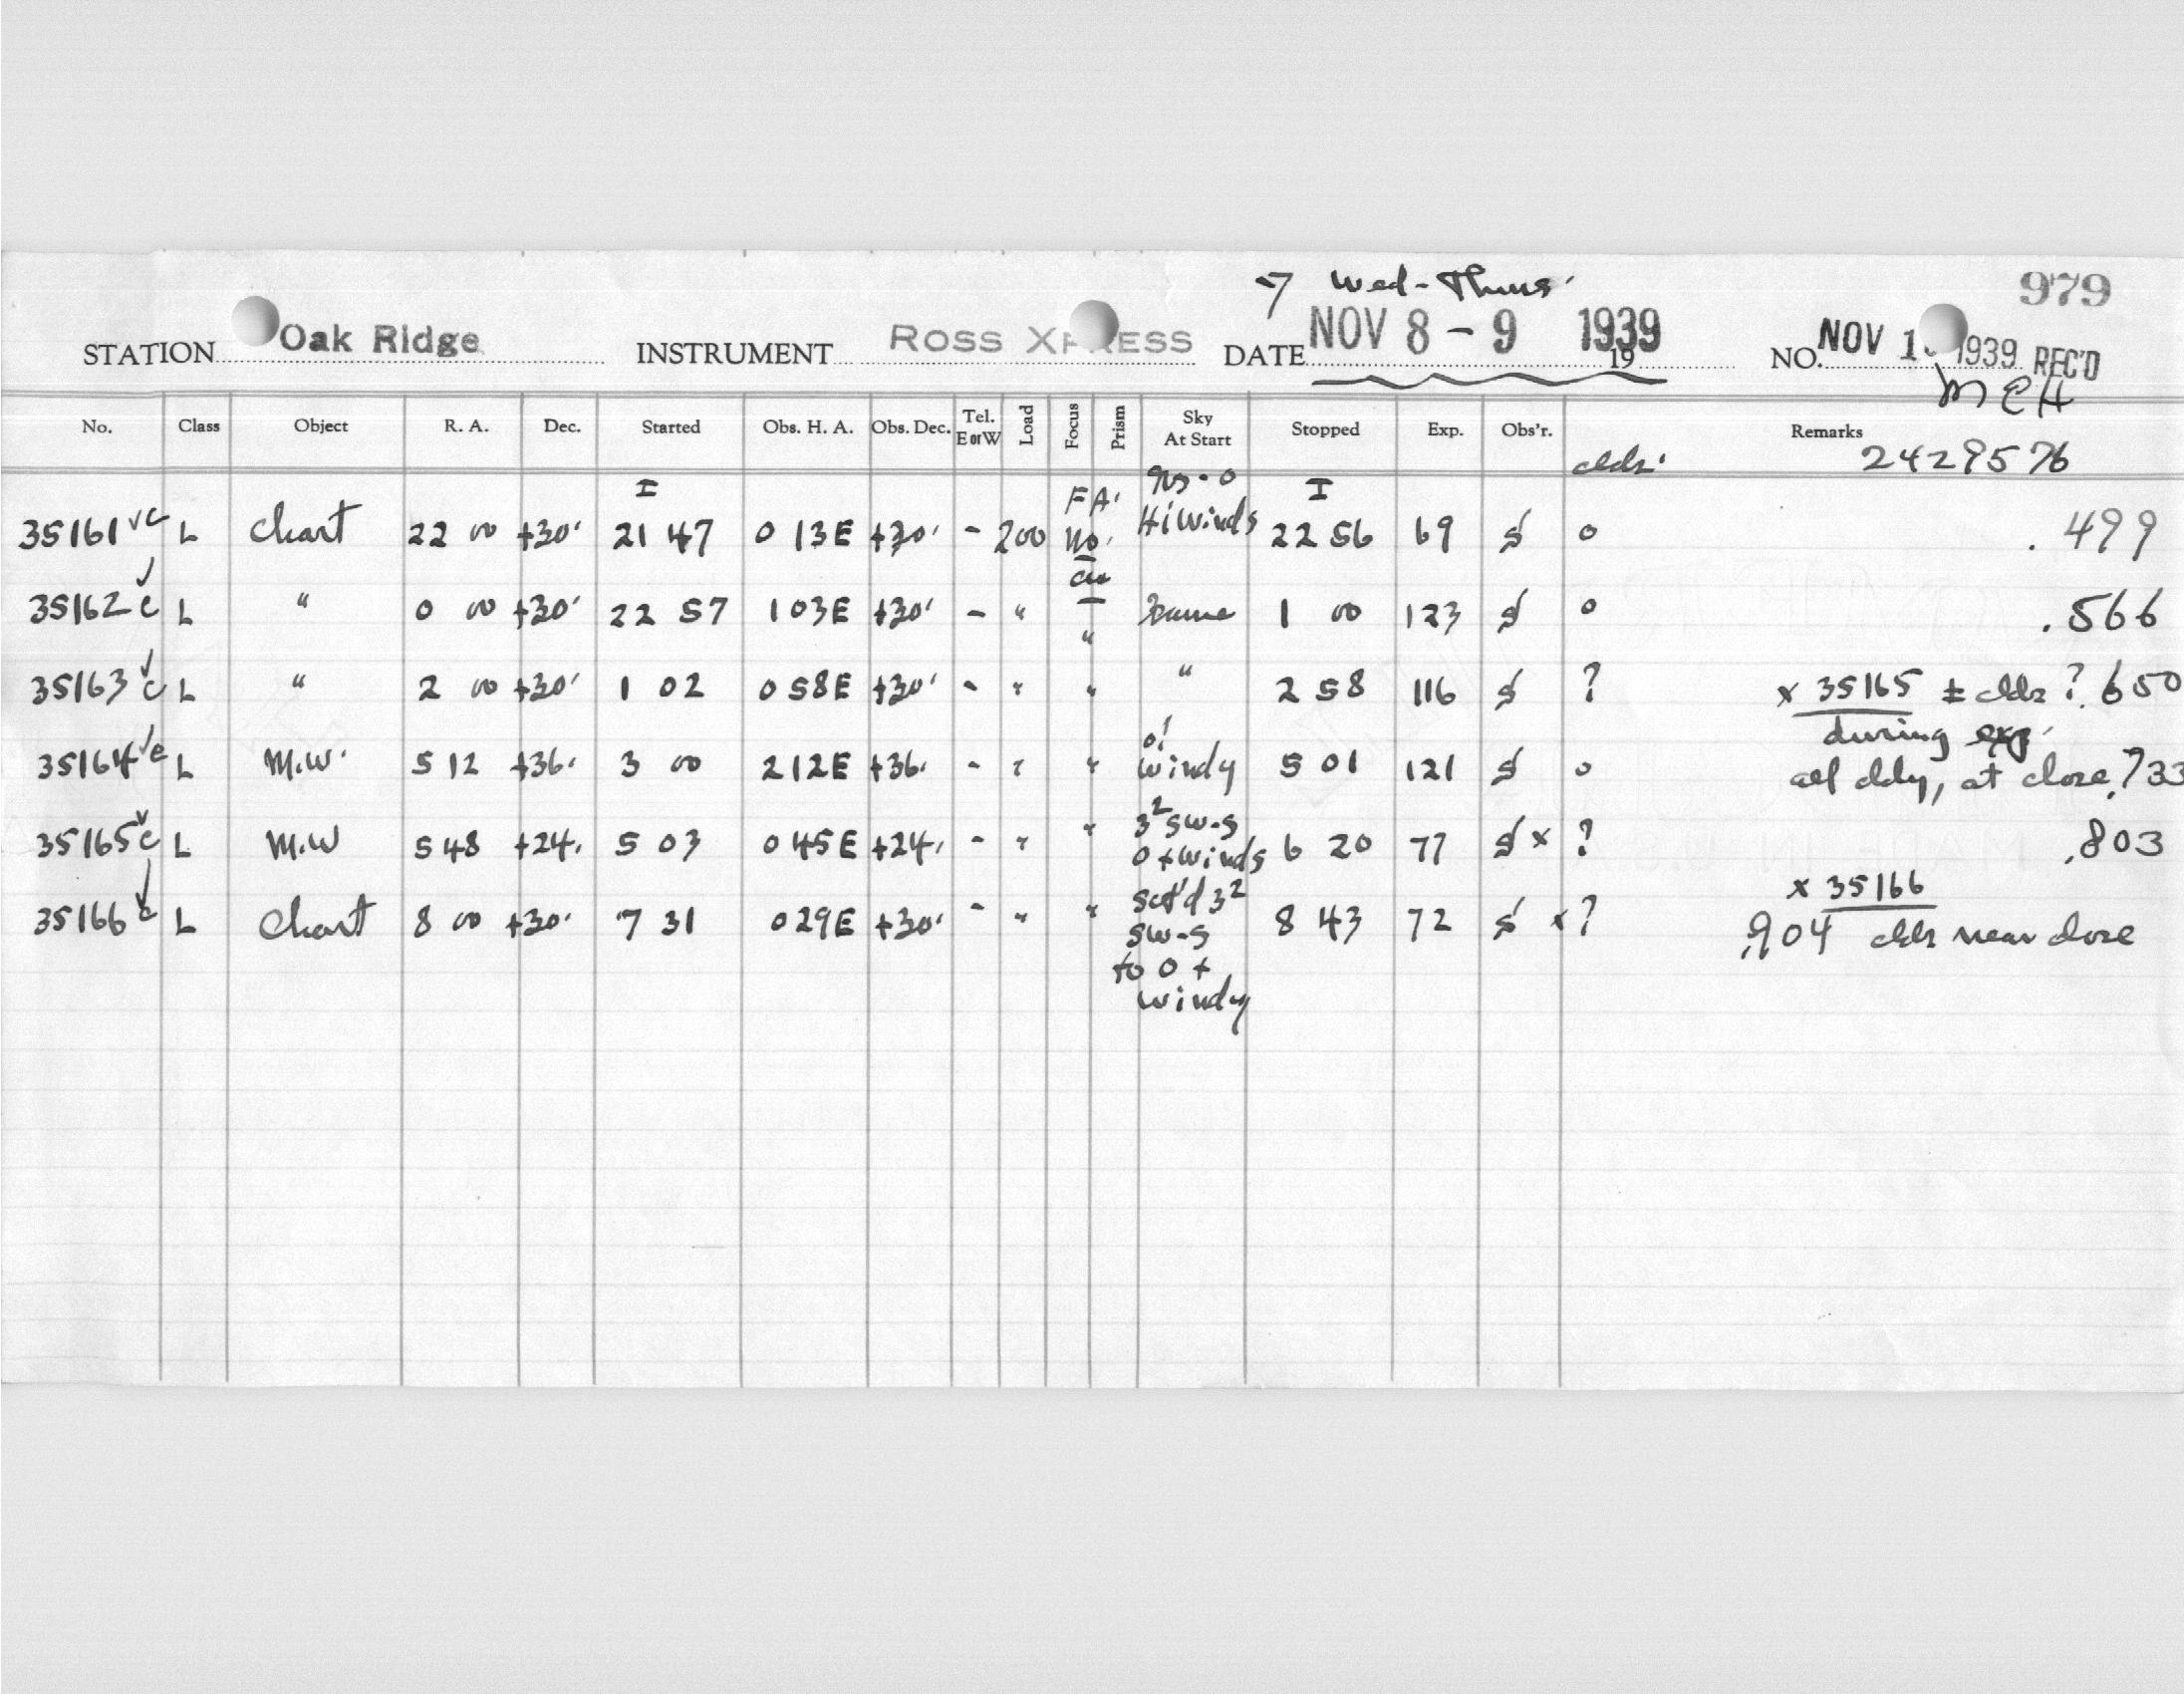 7 Wed-Thurs. 979
STATION Oak Ridge INSTRUMENT ROSS XPRESS DATE NOV 8-9 1939 19 NO. NOV 1 1939 REC'D
MEH
No. Class Object R. A. Dec. Started Obs. H. A. Obs. Dec. Tel. E or W Load Focus Prism Sky At Start Stopped Exp. Obs'r. Remarks
clds. 2429576
35161 c L Chart 22 00 +30. I 21 47 0 13E +30. - 200 FA. no. Hi Winds I 22 56 69 0 .499
35162 c L " 0 00 +30. 22 57 1 03E +30. - " " Same 1 00 123 0 .566
35163 c L " 2 00 +30. 1 02 0 58E +30. - " " " 2 58 116 ? x 35165 ± clds ? .650
during exp.
35164 c L M.W. 5 12 +36. 3 00 2 12E +36. - " " 0! windy 5 01 121 0 all cldy, at close .733
35165 c L M.W 5 48 +24. 5 03 0 45E +24. - " " 3² SW-S 0 + winds 6 20 77 x ? .803
x 35166
35166 c L Chart 8 00 +30. 7 31 0 29E +30. - " " sct'd 3² 8 43 72 x ? .904 clds near close
SW-S
to 0 +
windy